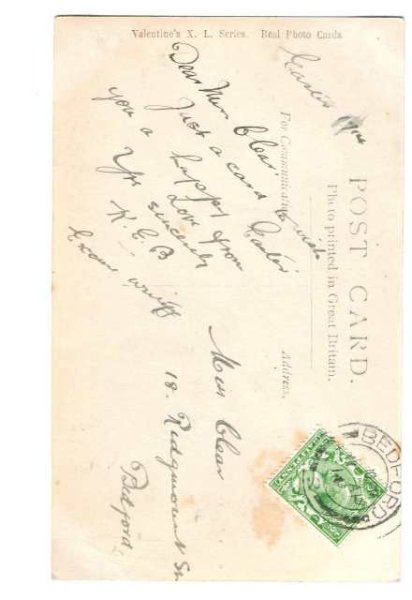 Valentine's X. L. Series. Real Photo Cards
POST CARD.
Photo printed in Great Britain.
For Communication
Address.
Easter
Dear Miss Clear
Just a card to wish
you a happy Easter
Love from
Yrs sincerely
K. E. B
Excuse writing
Miss Clear
18. Ridgmount St
Bedford
BEDFORD